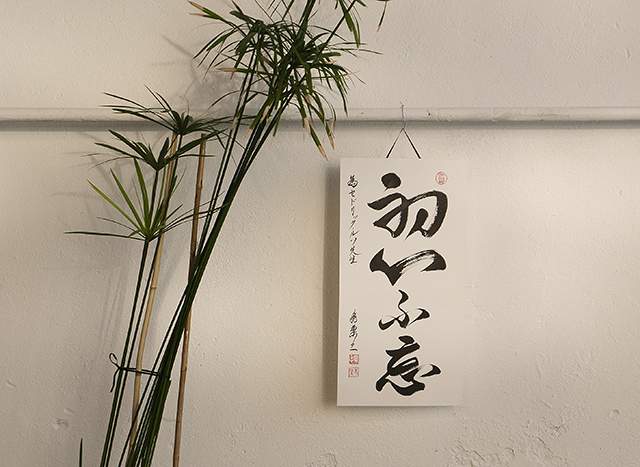 初心不忘
為セドリックルソ先生